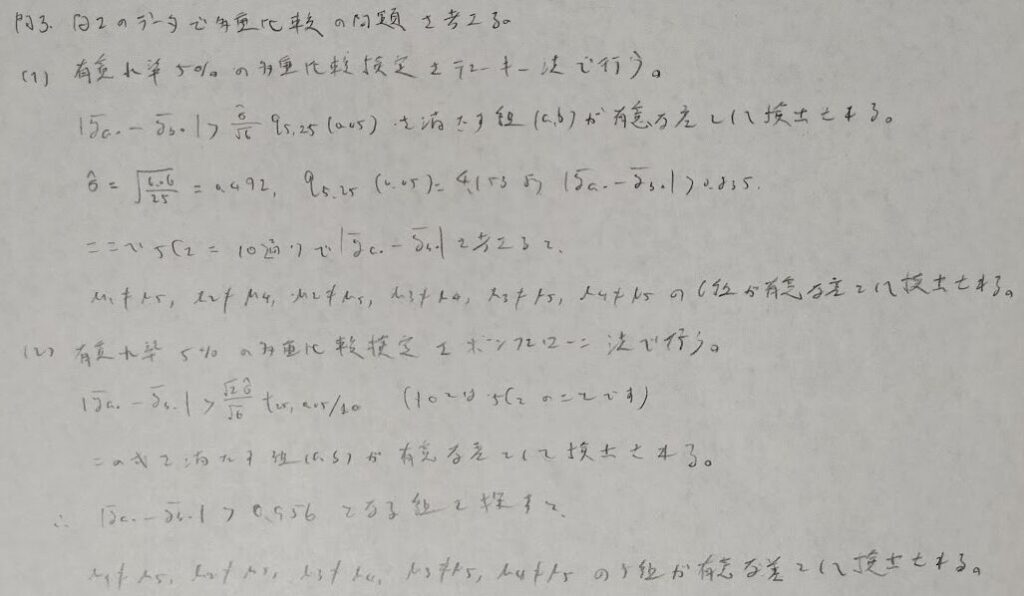 問3. 問2のデータで多重比較の問題を考える。
(1) 有意水準5%の多重比較検定をテューキー法で行う。
|ȳa. − ȳb.| > σ̂/√6 q5,25 (0.05) を満たす組(a,b)が有意な差として検出される。
σ̂ = √(6.06/25) = 0.492, q5,25 (0.05) = 4.153 より |ȳa. − ȳb.| > 0.835.
ここで 5C2 = 10通りで |ȳa. − ȳb.| を考えると、
μ1≠μ5, μ2≠μ4, μ2≠μ5, μ3≠μ4, μ3≠μ5, μ4≠μ5 の6組が有意な差として検出される。
(2) 有意水準5%の多重比較検定をボンフェローニ法で行う。
|ȳa. − ȳb.| > √2σ̂/√6 t25, 0.05/10 (10とは 5C2 のことです)
この式を満たす組(a,b)が有意な差として検出される。
∴ |ȳa. − ȳb.| > 0.956 となる組を探すと、
μ1≠μ5, μ2≠μ5, μ3≠μ4, μ3≠μ5, μ4≠μ5 の5組が有意な差として検出される。